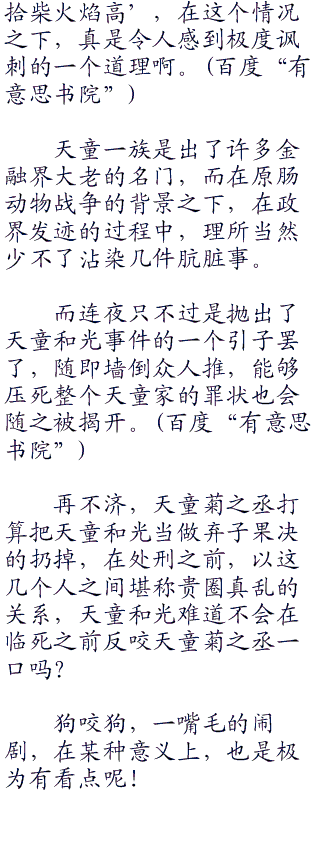 拾柴火焰高’，在这个情况
之下，真是令人感到极度讽
刺的一个道理啊。(百度“有
意思书院”)
天童一族是出了许多金
融界大老的名门，而在原肠
动物战争的背景之下，在政
界发迹的过程中，理所当然
少不了沾染几件肮脏事。
而连夜只不过是抛出了
天童和光事件的一个引子罢
了，随即墙倒众人推，能够
压死整个天童家的罪状也会
随之被揭开。(百度“有意思
书院”)
再不济，天童菊之丞打
算把天童和光当做弃子果决
的扔掉，在处刑之前，以这
几个人之间堪称贵圈真乱的
关系，天童和光难道不会在
临死之前反咬天童菊之丞一
口吗？
狗咬狗，一嘴毛的闹
剧，在某种意义上，也是极
为有看点呢！